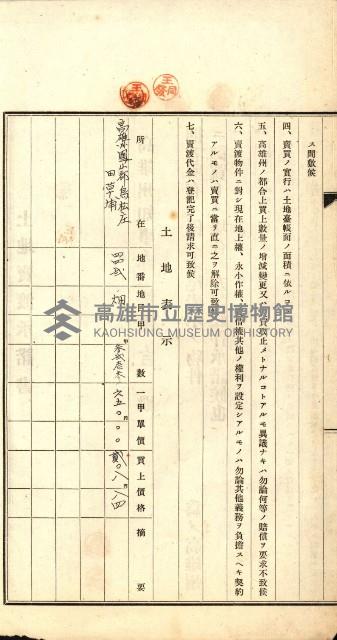 ス間敷候
四、賣買ノ實行ハ土地臺帳面ノ面積ニ依ルヲ
五、高雄州ノ都合上買上數量ノ增減變更又ハ買收止メトナルコトアルモ異議ナキハ勿論何等ノ賠償ヲ要求不致候
六、賣渡物件ニ對シ現在地上權、永小作權、其他ノ權利ヲ設定シアルモノハ勿論其他義務ヲ負擔スヘキ契約
アルモノハ賣買ニ當リ直ニ之ヲ解除可致
七、賣渡代金ハ登記完了後請求可致候
土地表示
所在 地番 地目 甲數 一甲單價 買上價格 摘要
高雄州鳳山郡鳥松庄
田草埔
畑
六五〇。〇〇
高雄市立歷史博物館
KAOHSIUNG MUSEUM OF HISTORY